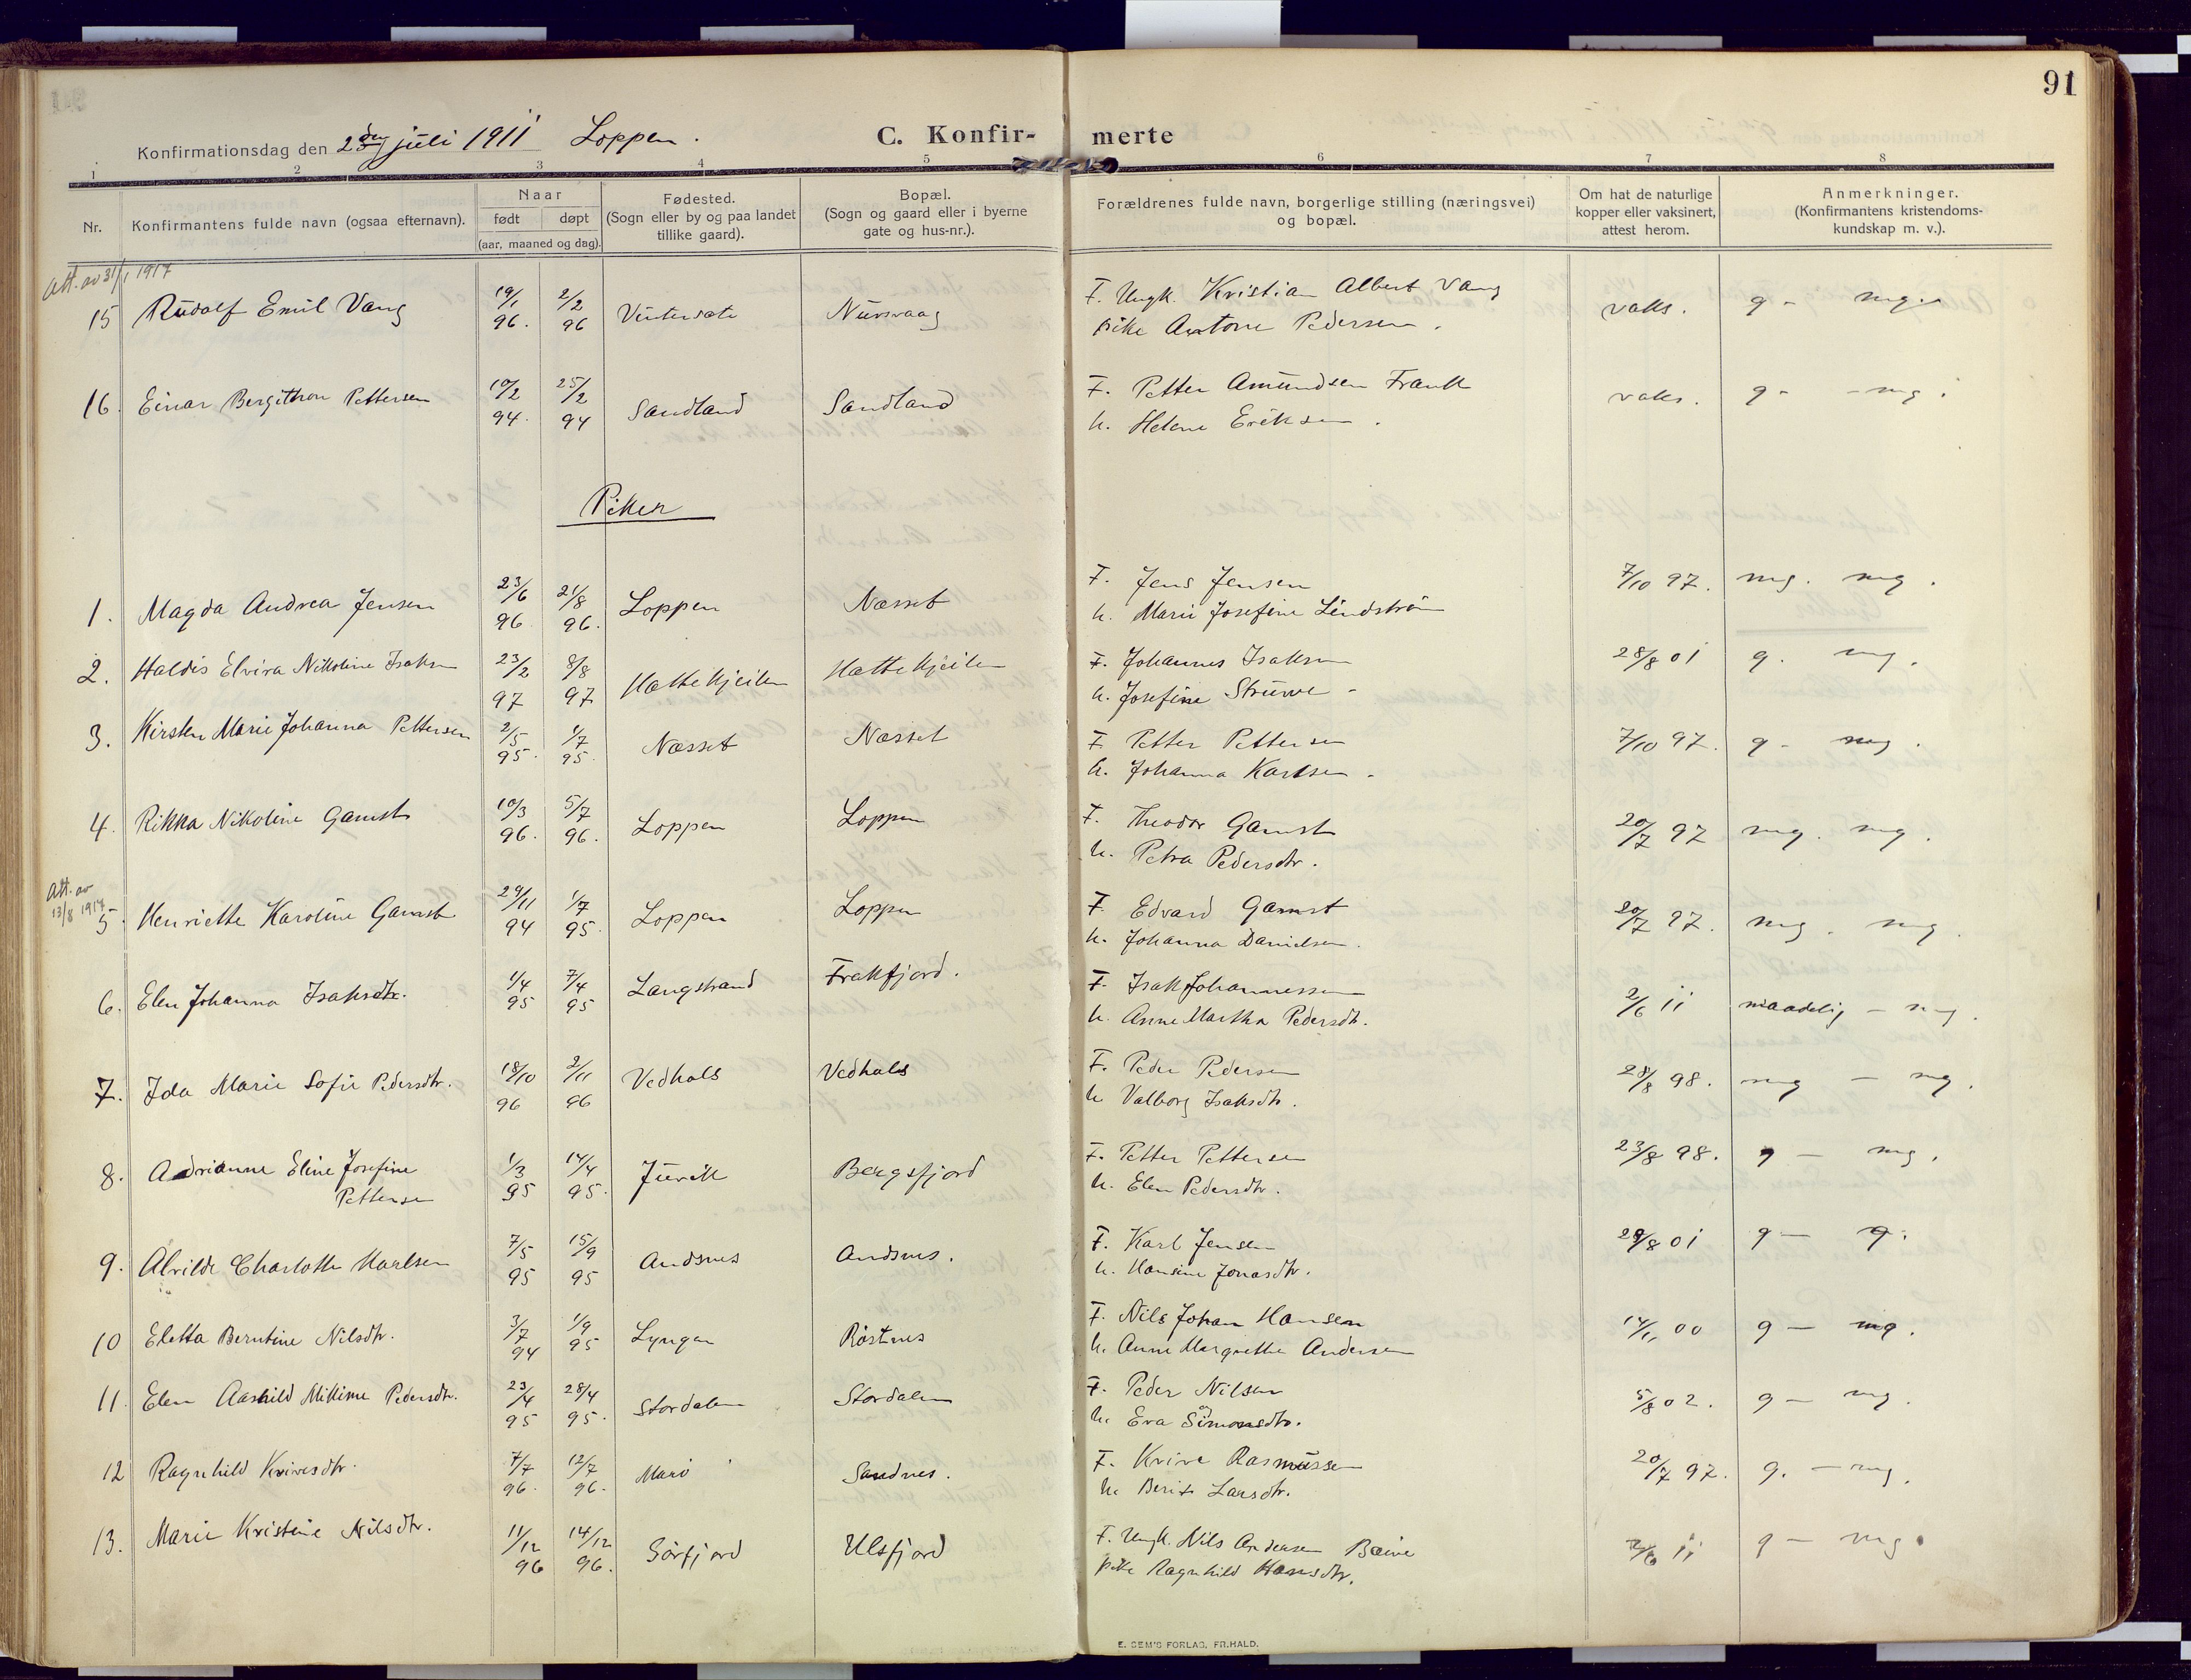 91
Konfirmationsdag den 23de juli 1911 Loppen.
C. Konfir- merte
1 2 3 4 5 6 7 8
Nr.
Konfirmantens fulde navn (ogsaa efternavn).
Naar
født døpt
(aar, maaned og dag).
Fødested.
(Sogn eller by og paa landet
tillike gaard).
Bopæl.
(Sogn og gaard eller i byerne
gate og hus-nr.).
Forældrenes fulde navn, borgerlige stilling (næringsvei)
og bopæl.
Om hat de naturlige
kopper eller vaksinert,
attest herom.
Anmerkninger.
(Konfirmantens kristendoms-
kundskap m. v.).
Att. av 31/1 1917
15 Rudolf Emil Vang 19/1 96. 2/2 96 Nuvsvaag F. Ungk. Kristian Albert Vang vaks. g - mg.
pike Antone Pedersen.
16. Einar Bergithon Pettersen 10/2 94. 25/2 94 Sandland Sandland F. Petter Amundsen Frank vaks. g - - mg.
h. Helene Eriksen.
Piker
1. Magda Andrea Jensen 23/6 96 21/8 96. Loppen Næsset F. Jens Jensen 7/10 97. mg. mg.
h. Marie Josefine Lindström
2. Haldis Elvira Nikoline Isaksen 23/2 97 8/8 97 Hattekjeilen Hattekjeilen F. Johannes Isaksen 28/8 01 g. mg.
h. Josefine Struwe -
3. Kirsten Marie Johanna Pettersen 2/5 95. 1/7 95. Næsset Næsset F Petter Pettersen 7/10 97. g - mg.
h. Johanna Karlsen.
4. Rikka Nikoline Gamst 10/3 96. 5/7 96. Loppen Loppen F. Theodor Gamst 20/7 97 mg. mg.
h. Petra Pedersdtr.
Att. av
13/8 1914
5. Henriette Karoline Gamst 29/11 94 1/7 95. Loppen Loppen F. Edvard Gamst 20/7 97. mg. mg.
h. Johanna Danielsen.
6. Elen Johanna Isaksdtr. 1/4 95 7/4 95 Langstrand Frakfjord. F. Isak Johannessen 2/6 11 maadelig - mg.
h. Anne Martha Pedersdtr.
7. Ida Marie Sofie Pedersdtr. 18/10 96 2/11 96 Vedhals Vedhals F. Peder Pedersen 28/8 98. mg - mg.
h Valborg Isaksdtr.
8. Adrianne Eline Josefine 1/3 95 14/4 95. Jüvik Bergsfjord F. Petter Pettersen 23/8 98. g - mg.
Pettersen h. Elen Pedersdtr.
9. Alvilde Charlotte Karlsen 7/5 95 15/9 95 Andsnes Andsnes. F. Karl Jensen 29/8 01 g - g.
h. Hansine Jonasdtr.
10 Eletta Berntine Nilsdtr. 3/7 94 1/9 95 Lyngen Röstnes F. Nils Johan Hansen 14/11 00 g - mg.
h. Anne Margrethe Andersen
11. Elen Aashild Mikkine Pedersdtr. 23/4 95 28/4 95. Stordalen Stordalen F. Peder Nilsen 5/8 02. g - mg.
h. Eva Simonsdtr.
12 Ragnhild Kvivesdtr. 7/7 96. 12/7 96. Sandnes. F. Kvive Rasmussen 20/7 97. g. - mg.
h. Berit Larsdtr.
13. Marie Kristine Nilsdtr. 11/12 96 14/12 96. Sörfjord Ulsfjord F. Ungk. Nils Andersen Bæive 2/6 11 g - mg.
pike Ragnhild Hansdtr.
E. SEM'S FORLAG, FR.HALD.